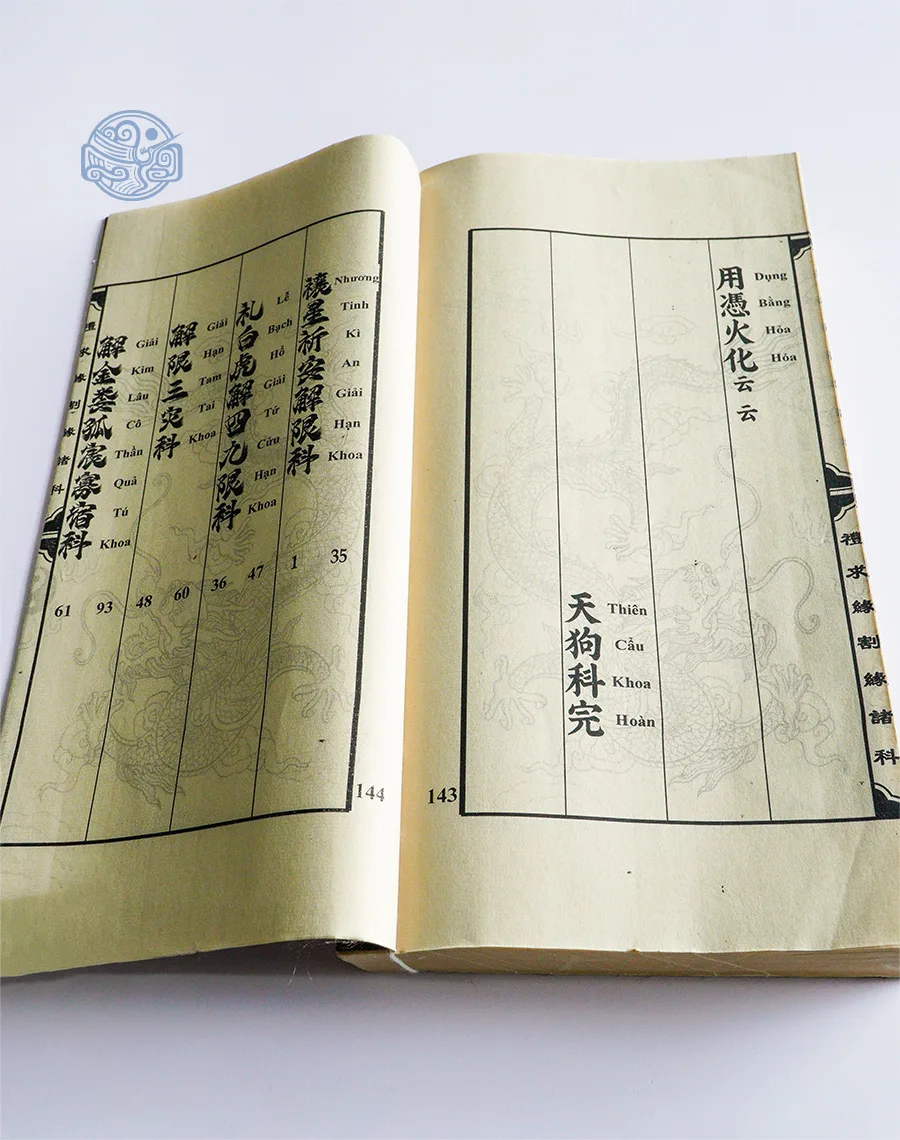 禮求緣割緣諸科
用憑火化云云
Dụng Bằng Hỏa Hóa
天狗科完
Thiên Cẩu Khoa Hoàn
143
144
禳星祈安解限科
Nhương Tinh Kì An Giải Hạn Khoa
1 35
礼白虎解四九限科
Lễ Bạch Hổ Giải Tứ Cửu Hạn Khoa
36 47
解限三灾科
Giải Hạn Tam Tai Khoa
48 60
解金婁孤宸寡宿科
Giải Kim Lâu Cô Thần Quả Tú Khoa
61 93
禮求緣割緣諸科